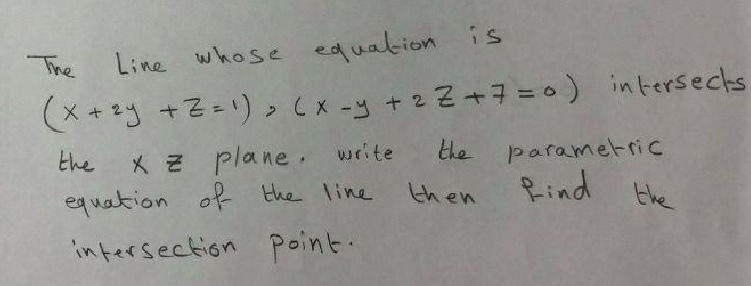 The Line whose equation is
(x + 2y + z = 1) , (x - y + 2z + 7 = 0) intersects
the x z plane. write the parametric
equation of the line then find the
intersection point.